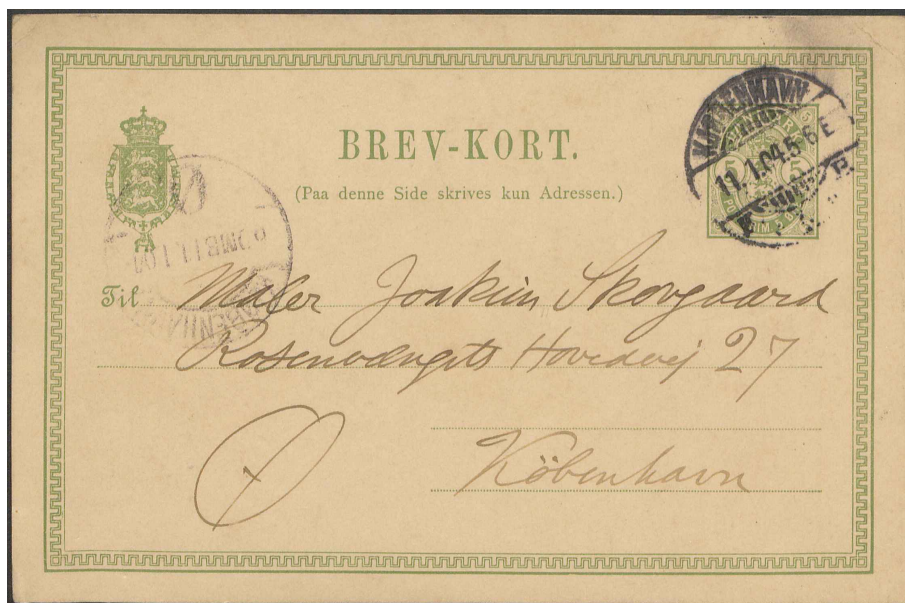 BREV-KORT.
(Paa denne Side skrives kun Adressen.)
KJØBENHAVN
11.1.04.5-6E
B.
5 5
Til Maler Joakim Skovgaard
Rosenvængets Hovedvej 27
Ø
København